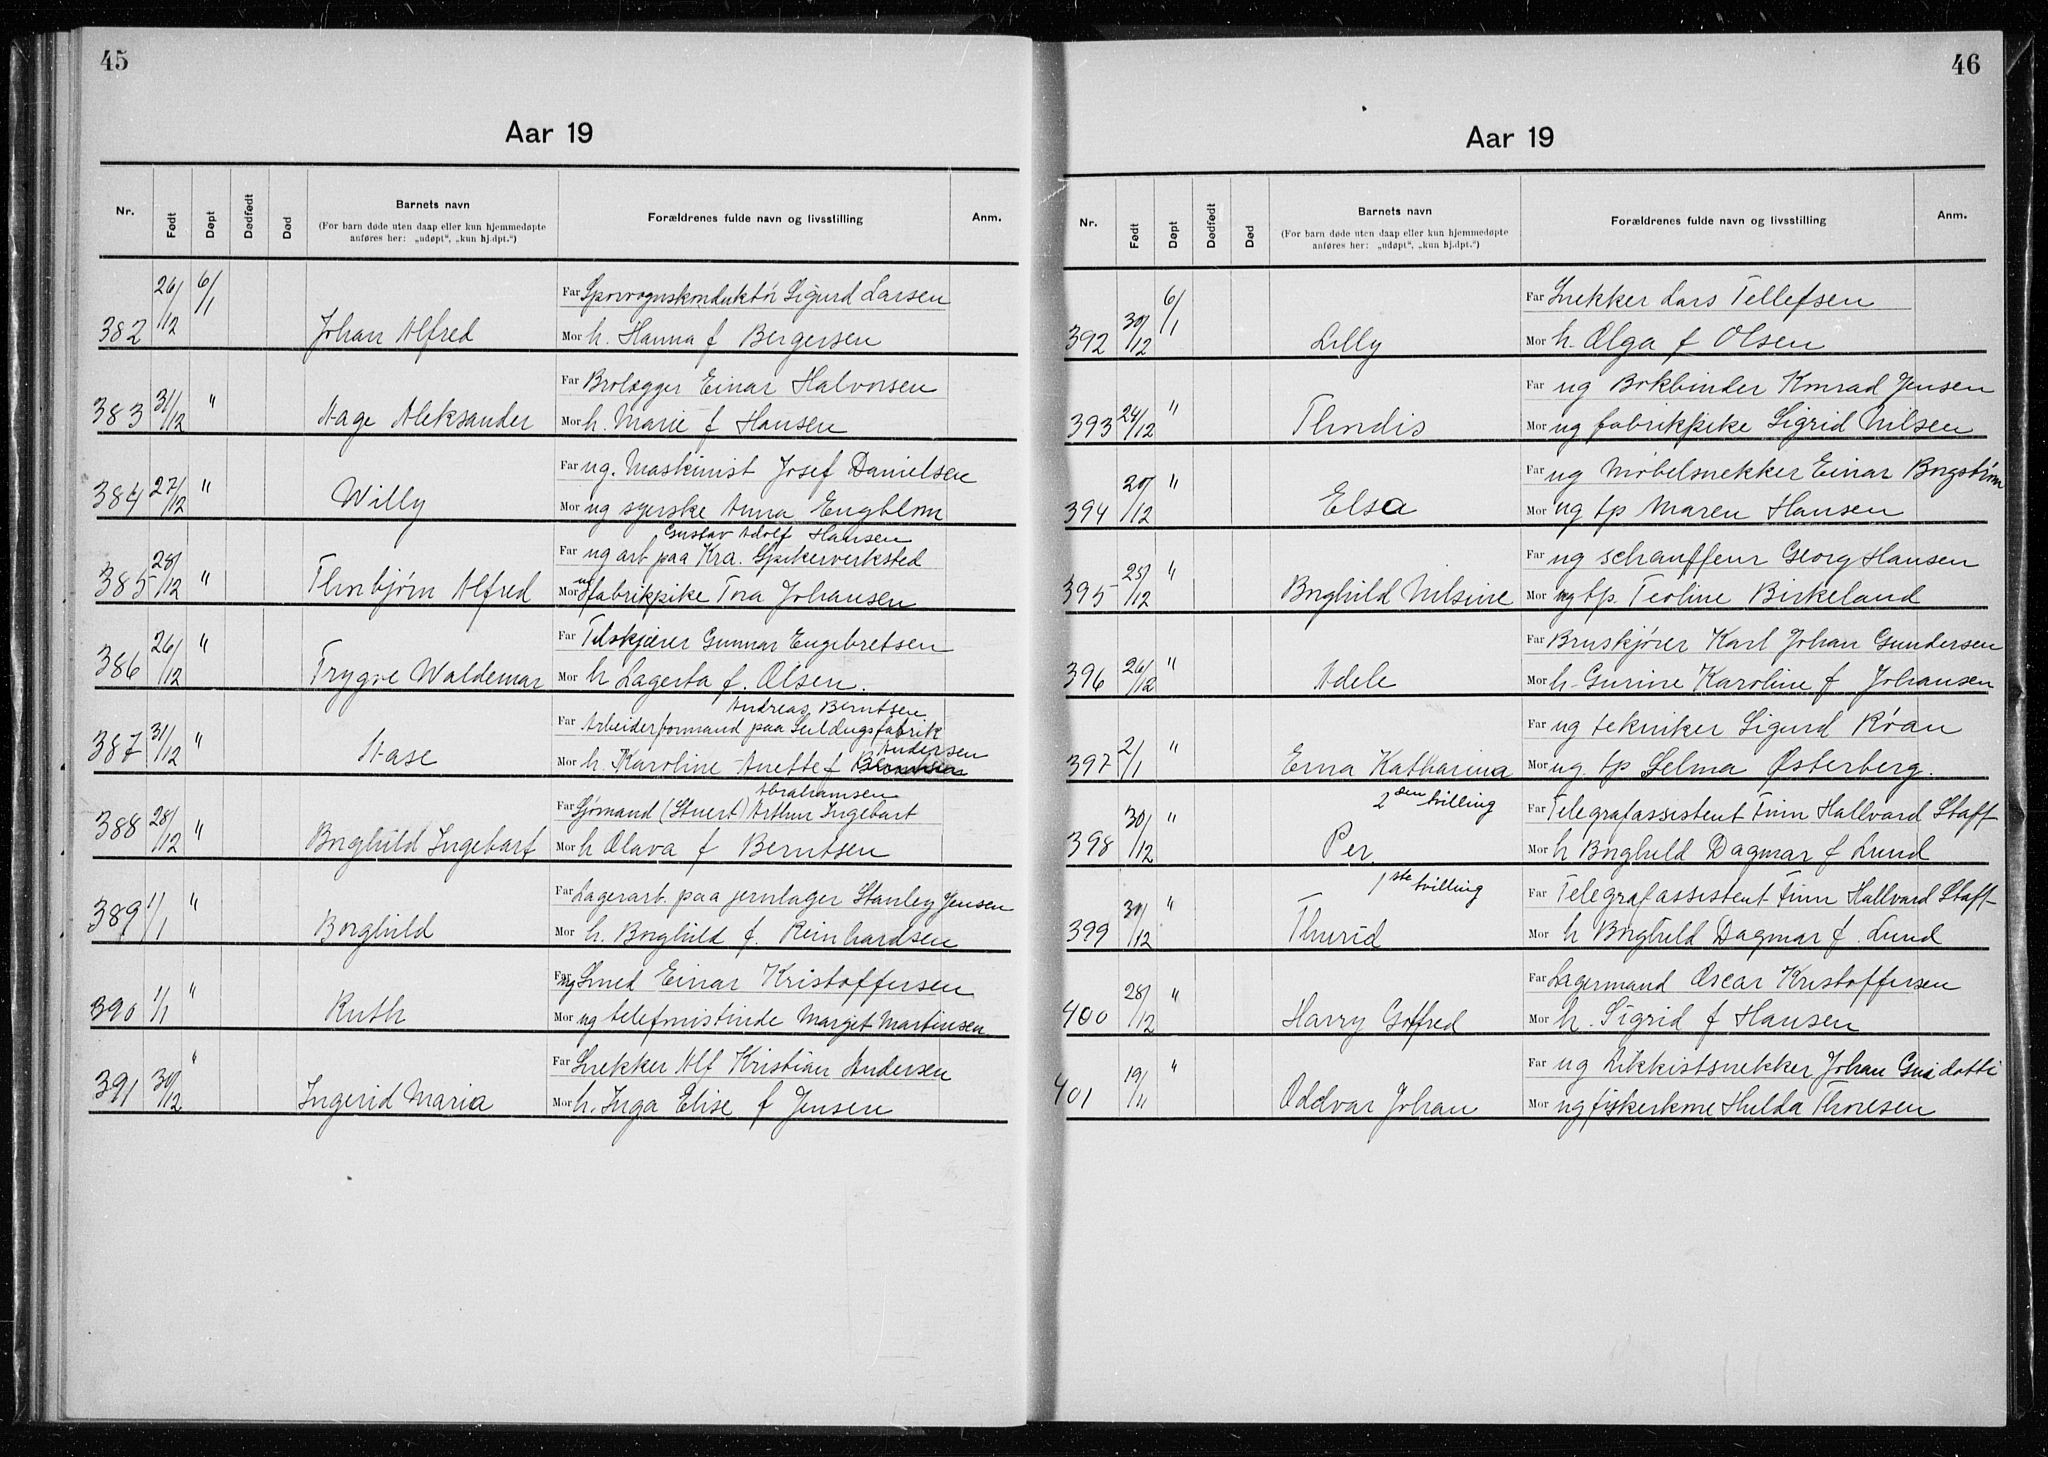 45
Aar 19
Nr. Født Døpt Dødfødt Død Barnets navn (For barn døde uten daap eller kun hjemmedøpte anføres her: „udøpt", „kun hj.dpt.") Forældrenes fulde navn og livsstilling Anm.
382 26/12 6/1 Johan Alfred Far Sporvognskonduktör Sigurd Larsen
Mor h. Hanna f Bergersen
383 31/12 " Aage Aleksander Far Brolægger Einar Halvorsen
Mor h. Marie f Hansen
384 27/12 " Willy Far ug. Maskinist Josef Danielsen
Mor ug syerske Anna Engblom
Gustav Adolf Hansen
385 28/12 " Thorbjørn Alfred Far ug arb paa Kra. Spikerverksted
Mor ug fabrikpike Tora Johansen
386 26/12 " Trygve Waldemar Far Tilskjærer Gunnar Engebretsen
Mor h Lagerta f. Olsen.
Andreas Berntsen
387 31/12 " Aase Far Arbeiderformand paa Seildugsfabrik
Andersen
Mor h. Karoline Anette f
Abrahamsen
388 28/12 " Borghild Ingebart Far Sjömand (Stuert) Arthur Ingebart
Mor h Olava f Berntsen
389 1/1 " Borghild Far Lagerarb. paa jernlager Stanley Jensen
Mor h. Borghild f. Reinhardsen
390 1/1 " Ruth Far ug Smed Einar Kristoffersen
Mor ug telefonistinde Margit Martinsen
391 30/12 " Ingerid Maria Far Snekker Alf Kristian Andersen
Mor h. Inga Elise f Jensen
46
Aar 19
Nr. Født Døpt Dødfødt Død Barnets navn (For barn døde uten daap eller kun hjemmedøpte anføres her: „udøpt", „kun hj.dpt.") Forældrenes fulde navn og livsstilling Anm.
392 30/12 6/1 Lilly Far Snekker Lars Tellefsen
Mor h. Olga f Olsen
393 24/12 " Thordis Far ug Bokbinder Konrad Jensen
Mor ug fabrikpike Sigrid Nilsen
394 20/12 " Elsa Far ug Möbelsnekker Einar Borgström
Mor ug tp Maren Hansen
395 25/12 " Borghild Nilsine Far ug schauffeur Georg Hansen
Mor ug tp. Teoline Birkeland
396 26/12 " Adele Far Bruskjörer Karl Johan Gundersen
Mor h. Gurine Karoline f Johansen
397 2/1 " Erna Katharina Far ug tekniker Sigurd Röan
Mor ug. tp Selma Østerberg.
2den tvilling
398 30/12 " Per. Far Telegrafassistent Finn Hallvard Staff
Mor h Borghild Dagmar f Lund
1ste tvilling
399 30/12 " Thurid Far Telegrafassistent Finn Hallvard Staff
Mor h Borghild Dagmar f. Lund
400 28/12 " Harry Gotfred Far Lagermand Oscar Kristoffersen
Mor h. Sigrid f Hansen
401 19/11 " Oddvar Johan Far ug Likkistsnekker Johan Guidotti
Mor ug fiskerkone Hulda Thoresen